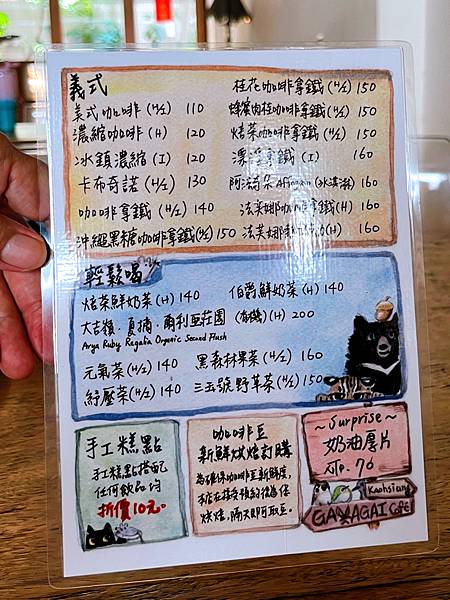 義式
美式咖啡(H/I) 110
濃縮咖啡(H) 120
冰鎮濃縮(I) 120
卡布奇諾(H/I) 130
咖啡拿鐵(H/I) 140
沖繩黑糖咖啡拿鐵(H/I) 150
桂花咖啡拿鐵(H/I) 150
蜂蜜肉桂咖啡拿鐵(H/I) 150
焙茶咖啡拿鐵(H/I) 150
漂浮拿鐵(I) 160
阿法奇朵 Affogato (冰淇淋) 160
法芙娜咖啡拿鐵(H) 160
法芙娜 (H) 160
輕鬆喝
焙茶鮮奶茶(H) 140
伯爵鮮奶茶(H) 140
大吉嶺.夏摘.爾利亞莊園 (有機)(H) 200
Arya Ruby Regalia Organic Second Flush
元氣茶(H/I) 140
黑森林果茶(H/I) 160
紓壓茶(H/I) 140
三五號野草茶(H/I) 150
手工糕點
手工糕點搭配
任何飲品均
折價10元。
咖啡豆
新鮮烘焙訂購
為確保咖啡豆新鮮度,
本店在接受預約後為您
烘焙,隔天即可取豆。
~Surprise~
奶油厚片
NTD. 70
Kaohsiung
GAVAGAI Cafe